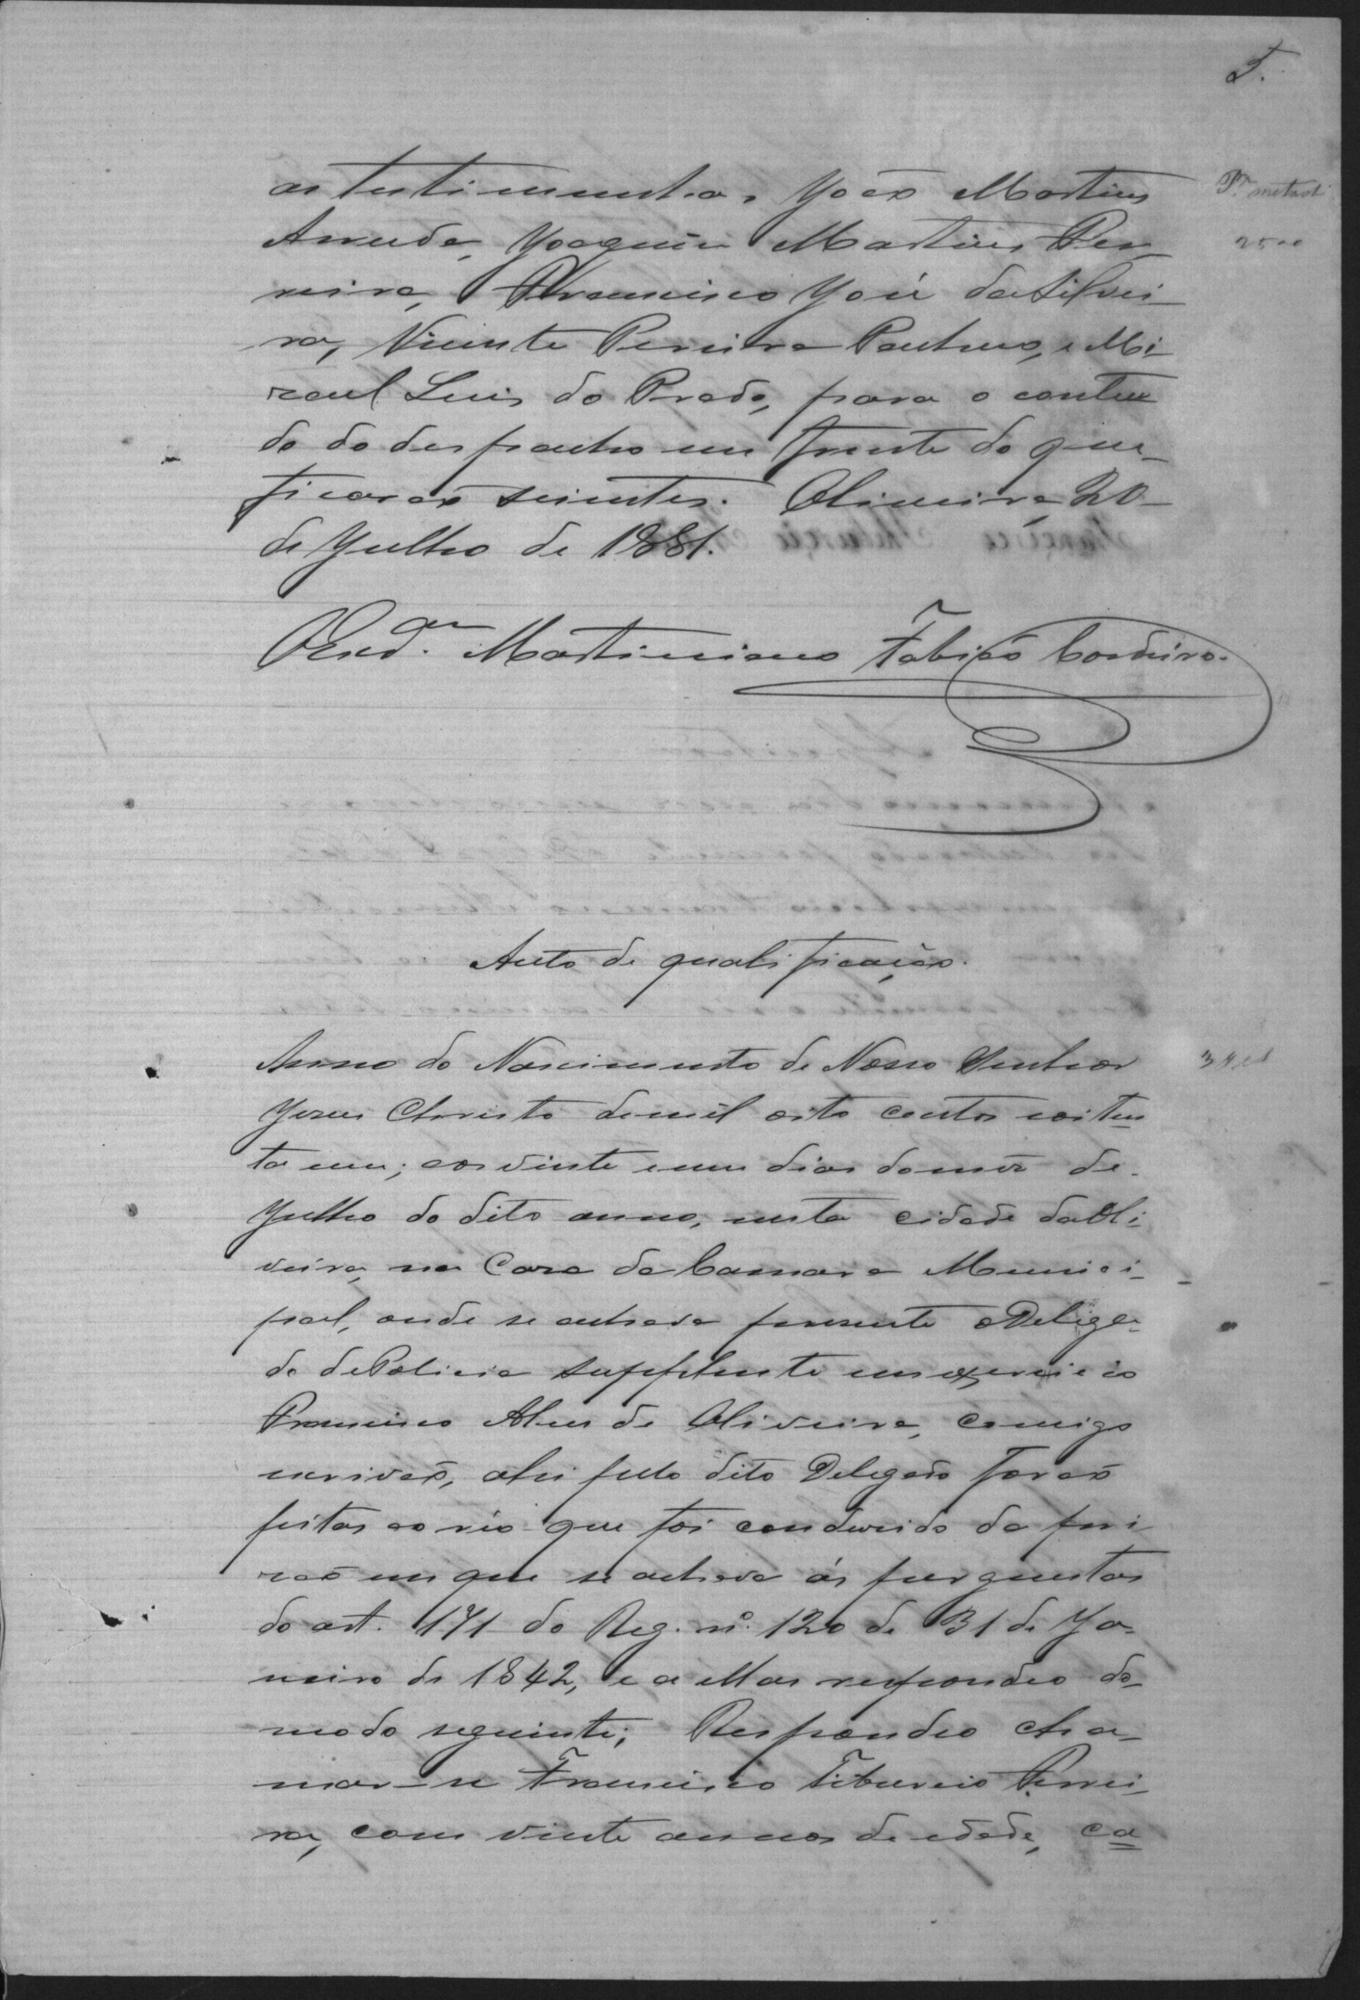 5.
as testimunhas, João Martins
Arruda, Joaquim Martins Per-
reira, Francisco José da Silvei-
ra, Vicente Pereira Pacheco, e Mi-
zael Luis do Prado, para o conteu
do do despacho em frente do que-
ficarão scientes. Oliveira, 20-
de Julho de 1881.
Martiniano Fabião Cordeiro.
Auto de qualificação.
Anno do Nascimento de Nosso Senhor
Jesus Christo de mil oito centos e oiten
ta um; aos vinte e um dias do mes de
Julho do dito anno, nesta cidade da Oli-
veira, na Casa da Camara Munici-
pal, onde se achava presente o Delega-
do de Policia supplente em exercicio
Francisco Alves de Oliveira, comigo
escrivão, ahi pello dito Delegado forão
feitas ao réo que foi conduzido da pri
zão em que se achava ás perguntas
do art. 171 do Reg. nº. 120 de 31 de Ja-
neiro de 1842, e a ellas respondeo do
modo seguinte; Respondeo cha-
mar-se Francisco Tiburcio Ferrei-
ra, com vinte annos de edade, ca